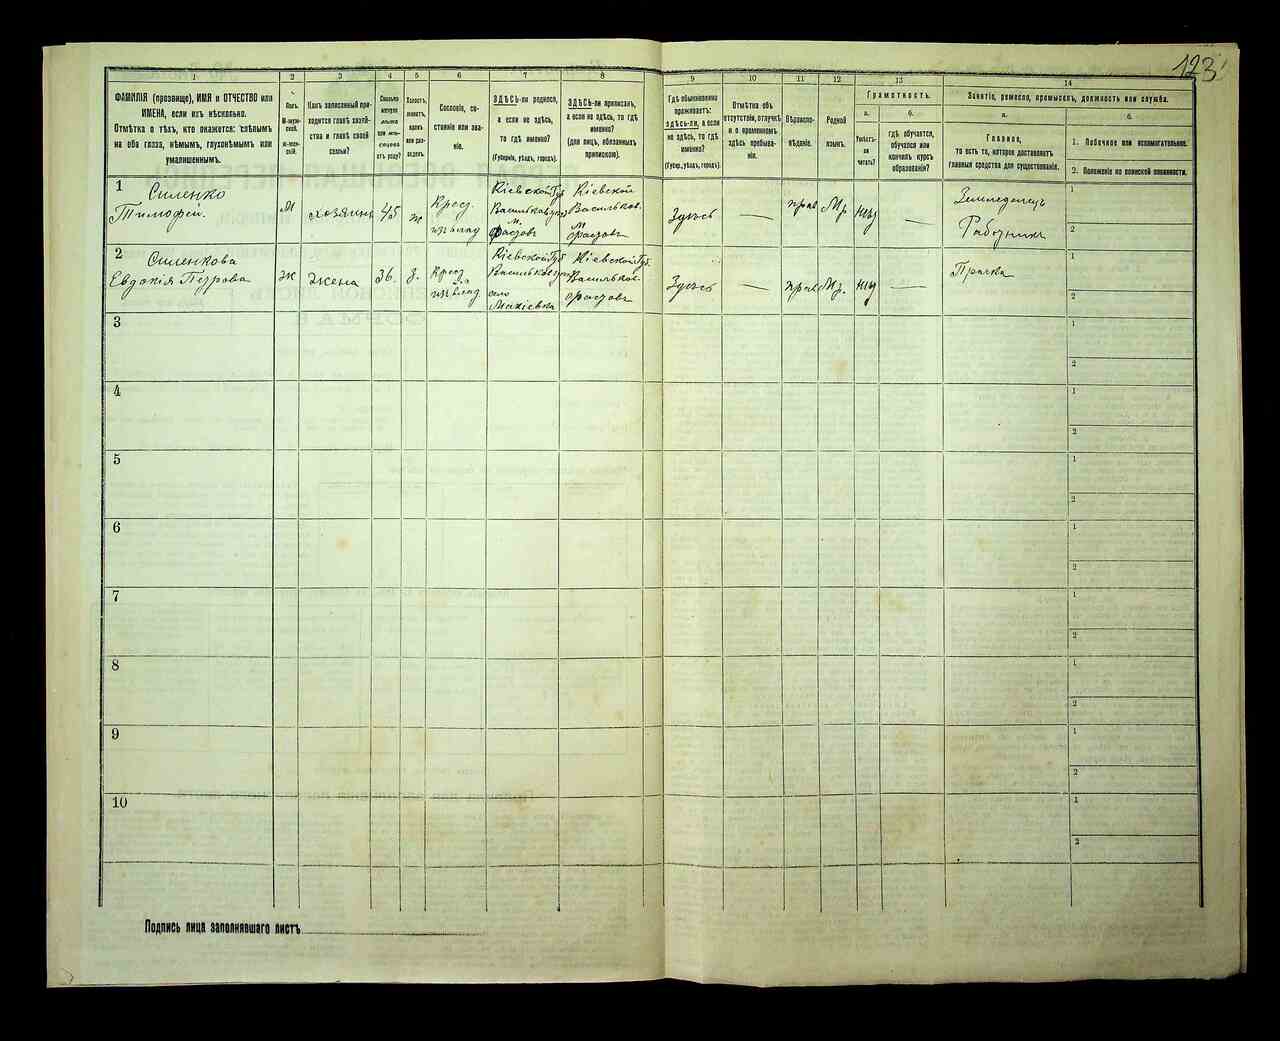 123
1 2 3 4 5 6 7 8 9 10 11 12 13 14
ФАМИЛІЯ (прозвище), ИМЯ и ОТЧЕСТВО или
ИМЕНА, если ихъ нѣсколько.
Отмѣтка о тѣхъ, кто окажется: слѣпымъ
на оба глаза, нѣмымъ, глухонѣмымъ или
умалишеннымъ.
Полъ.
М-мужской.
Ж-женскій.
Какъ записанный приходится
главѣ хозяйства
и главѣ своей
семьи?
Сколько
минуло
лѣтъ
или мѣсяцевъ
отъ роду?
Холостъ,
женатъ,
вдовъ
или разведенъ.
Сословіе, состояніе
или званіе.
ЗДѢСЬ-ли родился,
а если не здѣсь,
то гдѣ именно?
(Губернія, уѣздъ, городъ).
ЗДѢСЬ-ли приписанъ,
а если не здѣсь, то гдѣ
именно?
(для лицъ, обязанныхъ
припискою).
Гдѣ обыкновенно
проживаетъ:
здѣсь-ли, а если
не здѣсь, то гдѣ
именно?
(Губер., уѣздъ, городъ).
Отмѣтка объ
отсутствіи, отлучкѣ
и о временномъ
здѣсь пребываніи.
Вѣроисповѣданіе.
Родной
языкъ.
Грамотность.
а.
Умѣетъ-ли
читать?
б.
гдѣ обучается,
обучался или
кончилъ курсъ
образованія?
Занятіе, ремесло, промыселъ, должность или служба.
а.
Главное,
то есть то, которое доставляетъ
главныя средства для существованія.
б.
1. Побочное или вспомогательное.
2. Положеніе по воинской повинности.
1
Силенко
Тимофей.
М
хозяинъ
45
ж
Крес.
изъ влад
Кіевской Губ
Васильков. уѣз
м.
Фастовъ
Кіевской
Васильков.
м.
Фастовъ
Здѣсь
—
прав
Мр.
нѣт
—
Земледелецъ
Работникъ
1
2
2
Силенкова
Евдокія Петрова
ж
жена
36.
з.
Крес
изъ влад
Кіевской Губ
Васильков уѣз
село
Кіевской Губ.
Васильков.
Фастовъ
Здѣсь
—
прав
Мр.
нѣт
—
Прачка
1
2
3
1
2
4
1
2
5
1
2
6
1
2
7
1
2
8
1
2
9
1
2
10
1
2
Подпись лица заполнявшаго листъ